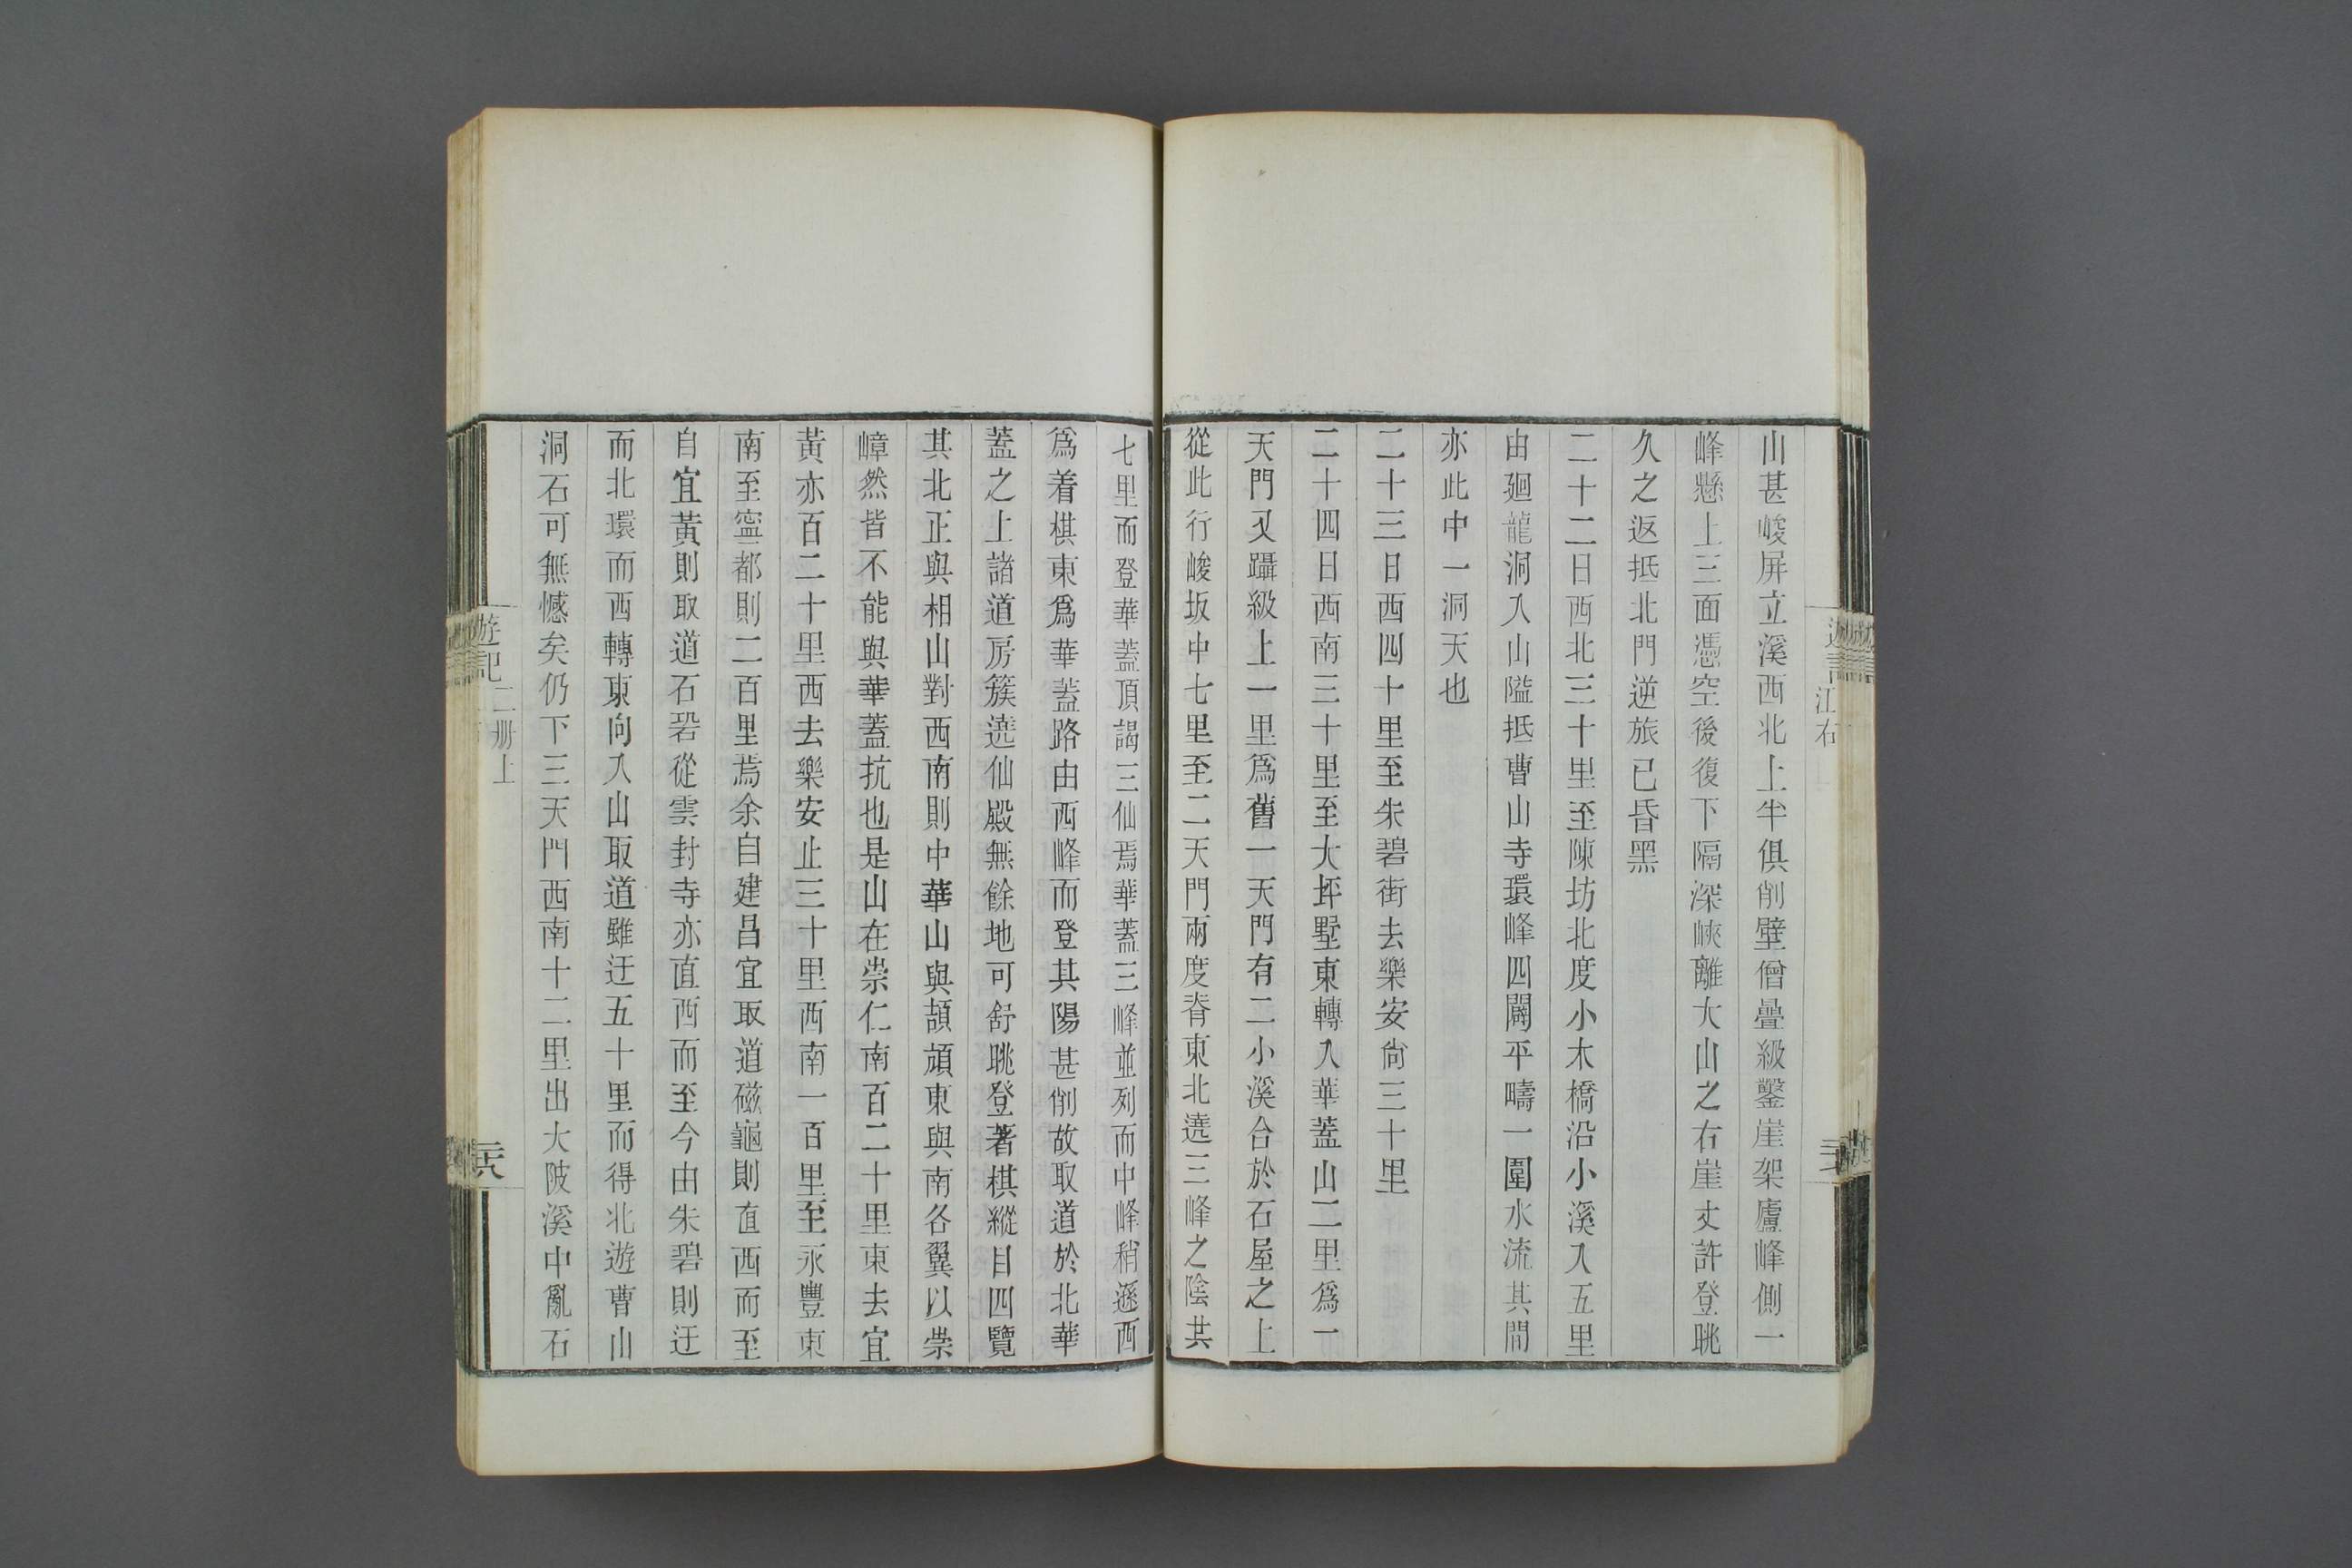 山甚峻屏立溪西北上半俱削壁僧疊級鑿崖架廬峰側一
峰懸上三面憑空後復下隔深峽離大山之右崖丈許登眺
久之返抵北門逆旅已昏黑
二十二日西北三十里至陳坊北度小木橋沿小溪入五里
由廻龍洞入山隘抵曹山寺環峰四闢平疇一圍水流其間
亦此中一洞天也
二十三日西四十里至朱碧街去樂安尚三十里
二十四日西南三十里至大坪墅東轉入華蓋山二里爲一
天門又躡級上一里爲舊一天門有二小溪合於石屋之上
從此行峻坂中七里至二天門兩度脊東北遶三峰之陰共
七里而登華蓋頂謁三仙焉華蓋三峰並列而中峰稍遜西
爲着棋東爲華蓋路由西峰而登其陽甚削故取道於北華
蓋之上諸道房簇遶仙殿無餘地可舒眺登著棋縱目四覽
其北正與相山對西南則中華山與頡頏東與南各翼以崇
嶂然皆不能與華蓋抗也是山在崇仁南百二十里東去宜
黃亦百二十里西去樂安止三十里西南一百里至永豐東
南至寧都則二百里焉余自建昌宜取道磁龜則直西而至
自宜黃則取道石䂬從雲封寺亦直西而至今由朱碧則迂
而北環而西轉東向入山取道雖迂五十里而得北遊曹山
洞石可無憾矣仍下三天門西南十二里出大陂溪中亂石
江右
遊記
二册上